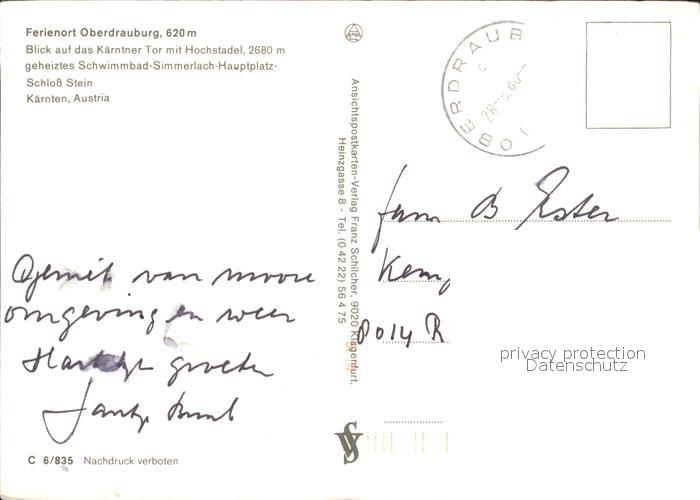 Ferienort Oberdrauburg, 620 m
Blick auf das Kärntner Tor mit Hochstadel, 2680 m
geheiztes Schwimmbad-Simmerlach-Hauptplatz-
Schloß Stein
Kärnten, Austria
OBERDRAUB
Ansichtspostkarten-Verlag Franz Schilcher, 9020 Klagenfurt,
Heinzgasse 8 - Tel. (0 42 22) 56 4 75
Fam B Ester
Kem
8014 R
Geniet van mooie
omgeving en weer
Hartelijke groeten
privacy protection
Datenschutz
C 6/835 Nachdruck verboten